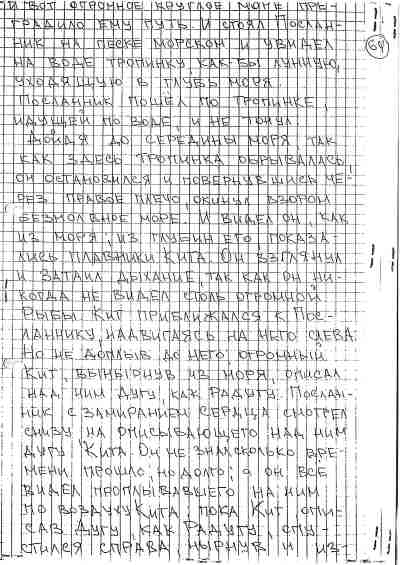 И вот огромное круглое море пре-
градило ему путь. И стоял Послан-
ник на песке морском и увидел
на воде тропинку, как бы лунную,
уходящую в глубь моря.
Посланник пошёл по тропинке,
идущей по воде, и не тонул.
Дойдя до середины моря, так
как здесь тропинка обрывалась,
он остановился и повернувшись че-
рез правое плечо, окинул взором
безмолвное море. И видел он, как
из моря, из глубин его показа-
лись плавники Кита. Он взглянул
и затаил дыхание, так как он ни-
когда не видел столь огромной
Рыбы. Кит приближался к Пос-
ланнику, надвигаясь на него слева.
Но не доплыв до него, огромный
Кит, вынырнув из моря, описал
над ним дугу, как Радугу. Послан-
ник с замиранием сердца смотрел
снизу на описывающего над ним
дугу Кита. Он не знал сколько вре-
мени прошло, но долго; а он всё
видел проплывавшего над ним
по воздуху Кита, пока Кит, опи-
сав Дугу, как Радугу, опу-
стился справа, нырнув и из-
64